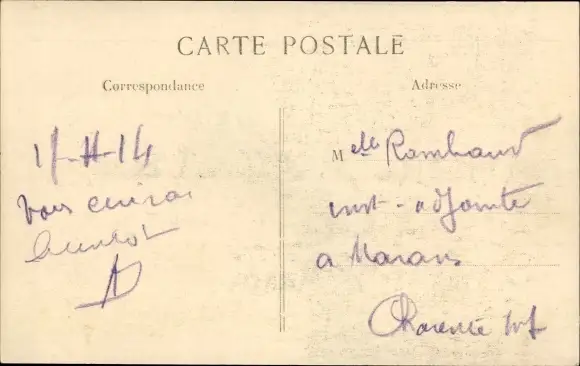 CARTE POSTALE
Correspondance
Adresse
-II-14
Vous écrirai
bientôt
A
Melle Rambaud
inst-adjointe
a Marans
Charente Inf